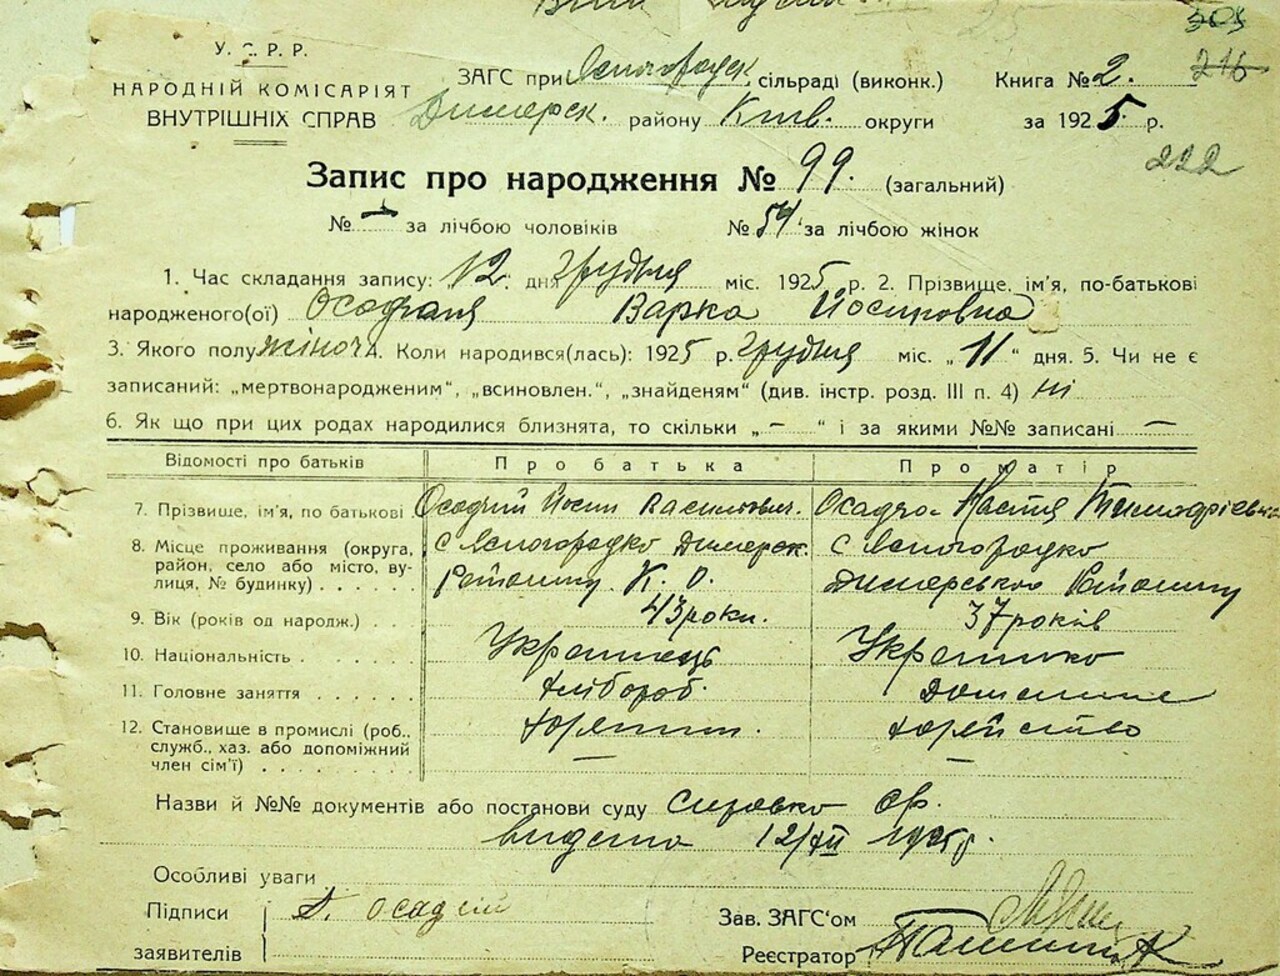 305
216
У. С. Р. Р.
НАРОДНІЙ КОМІСАРІЯТ
ВНУТРІШНІХ СПРАВ
ЗАГС при Ясногородск. сільраді (виконк.) Книга № 2.
Димерск. району Київ. округи за 1925 р.
222
Запис про народження № 99. (загальний)
№ — за лічбою чоловіків № 54 за лічбою жінок
1. Час складання запису: „12“ дня грудня міс. 1925 р. 2. Прізвище, ім'я, по-батькові
народженого(ої) Осадчая Варка Йосиповна
3. Якого полу жіноч. 4. Коли народився(лась): 1925 р. грудня міс. „11“ дня. 5. Чи не є
записаний: „мертвонародженим“, „всиновлен.“, „знайденям“ (див. інстр. розд. III п. 4) ні
6. Як що при цих родах народилися близнята, то скільки „—“ і за якими №№ записані —
Відомості про батьків Про батька Про матір
7. Прізвище, ім'я, по батькові Осадчий Йосип Васильович. Осадча Настя Тимофієвна
8. Місце проживання (округа, район, село або місто, вулиця, № будинку) с Ясногородка Димерск. с Ясногородка
Району К. О. Димерського Району
9. Вік (років од народж.) 43 роки. 37 років
10. Національність Українець Українка
11. Головне заняття хлібороб. домашнє
12. Становище в промислі (роб., служб., хаз. або допоміжний член сім'ї) — —
Назви й №№ документів або постанови суду
видана 12/XII 1925 р.
Особливі уваги
Підписи заявителів Осадчий
Зав. ЗАГС'ом
Реєстратор